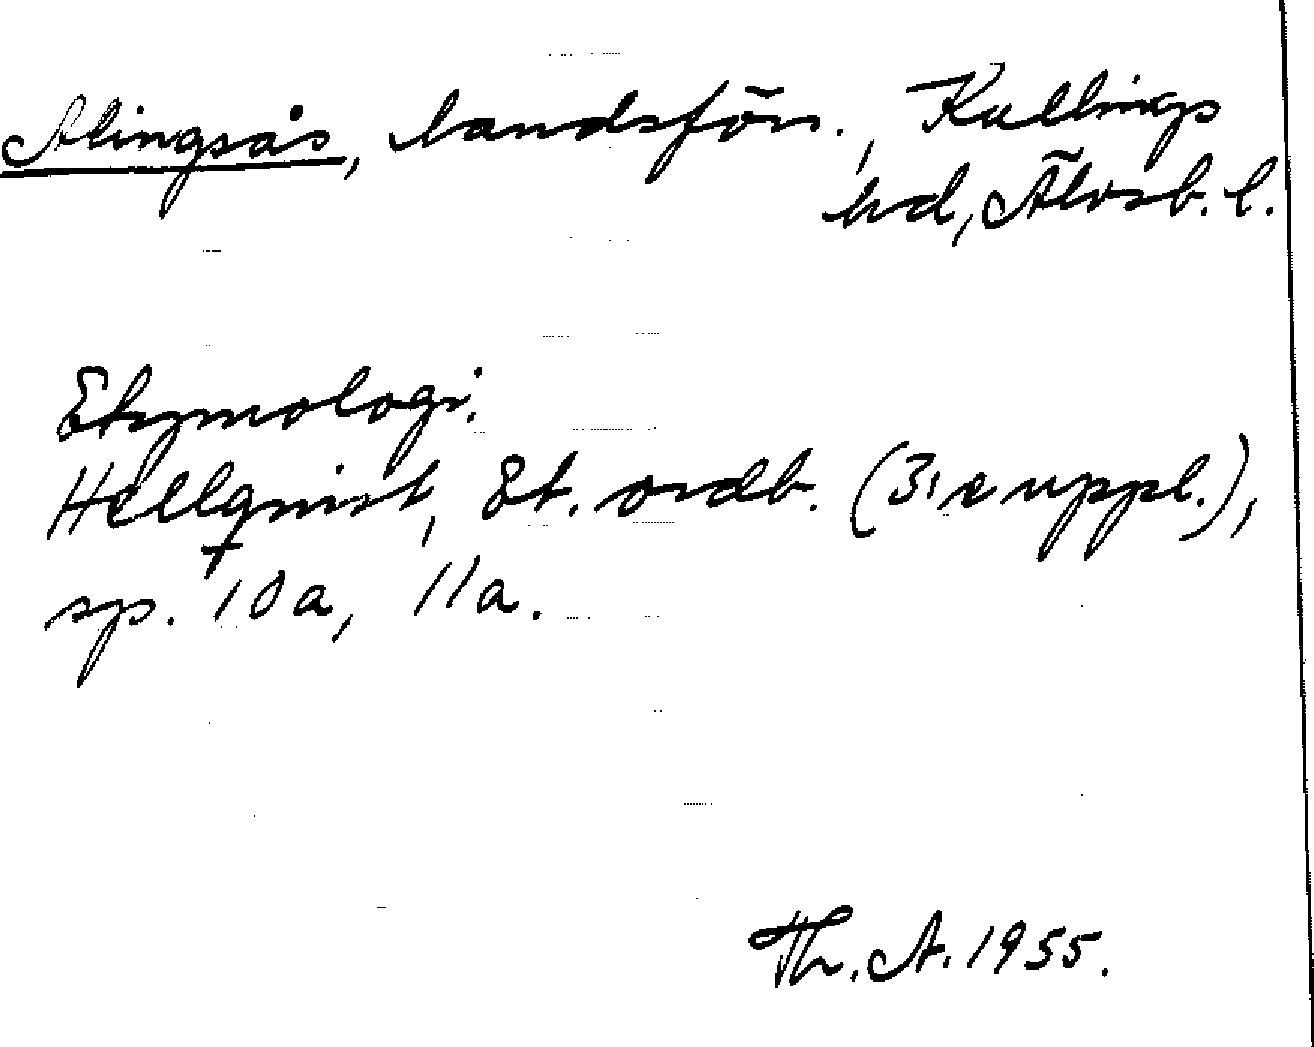 Alingsås, landsförs., Kullings
hd, Älvsb. l.
Etymologi.
Hellqvist, Et. ordb. (3:e uppl.),
sp. 10a, 11a.
Th. A. 1955.